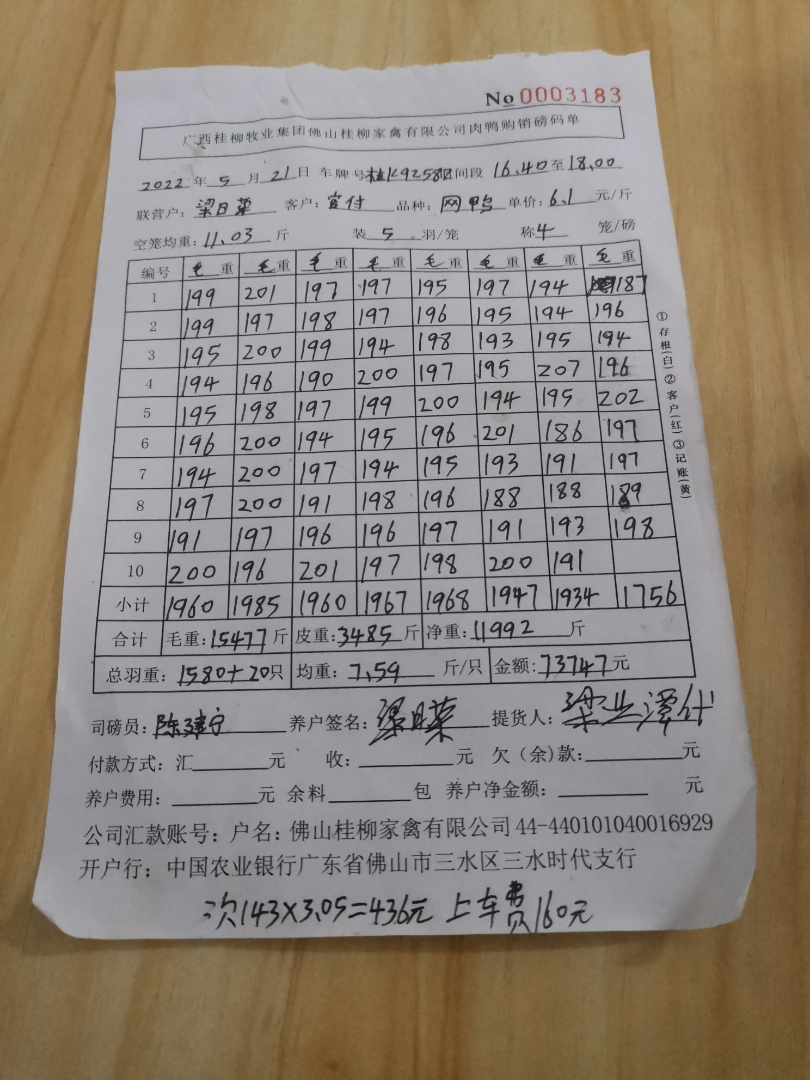 No 0003183
广西桂柳牧业集团佛山桂柳家禽有限公司肉鸭购销磅码单
2022 年 5 月 21 日 车牌号 桂K92588 间段 16.40 至 18.00
联营户: 梁日菓 客户: 宜付 品种: 网鸭 单价: 6.1 元/斤
空笼均重: 11.03 斤 装 5 羽/笼 称 4 笼/磅
编号 毛重 毛重 毛重 毛重 毛重 毛重 毛重 毛重
1 199 201 197 197 195 197 194 187
2 199 197 198 197 196 195 194 196
3 195 200 199 194 198 193 195 194
4 194 196 190 200 197 195 207 196
5 195 198 197 199 200 194 195 202
6 196 200 194 195 196 201 186 197
7 194 200 197 194 195 193 191 197
8 197 200 191 198 196 188 188 189
9 191 197 196 196 197 191 193 198
10 200 196 201 197 198 200 191
小计 1960 1985 1960 1967 1968 1947 1934 1756
合计 毛重: 15477 斤 皮重: 3485 斤 净重: 11992 斤
总羽重: 1580+20 只 均重: 7.59 斤/只 金额: 73747 元
司磅员: 陈建宁 养户签名: 梁日菓 提货人: 梁业泽代
付款方式: 汇 元 收: 元 欠(余)款: 元
养户费用: 元 余料 包 养户净金额: 元
公司汇款账号: 户名: 佛山桂柳家禽有限公司 44-440101040016929
开户行: 中国农业银行广东省佛山市三水区三水时代支行
次143×3.05=436元 上车费160元
①存根(白)②客户(红)③记账(黄)